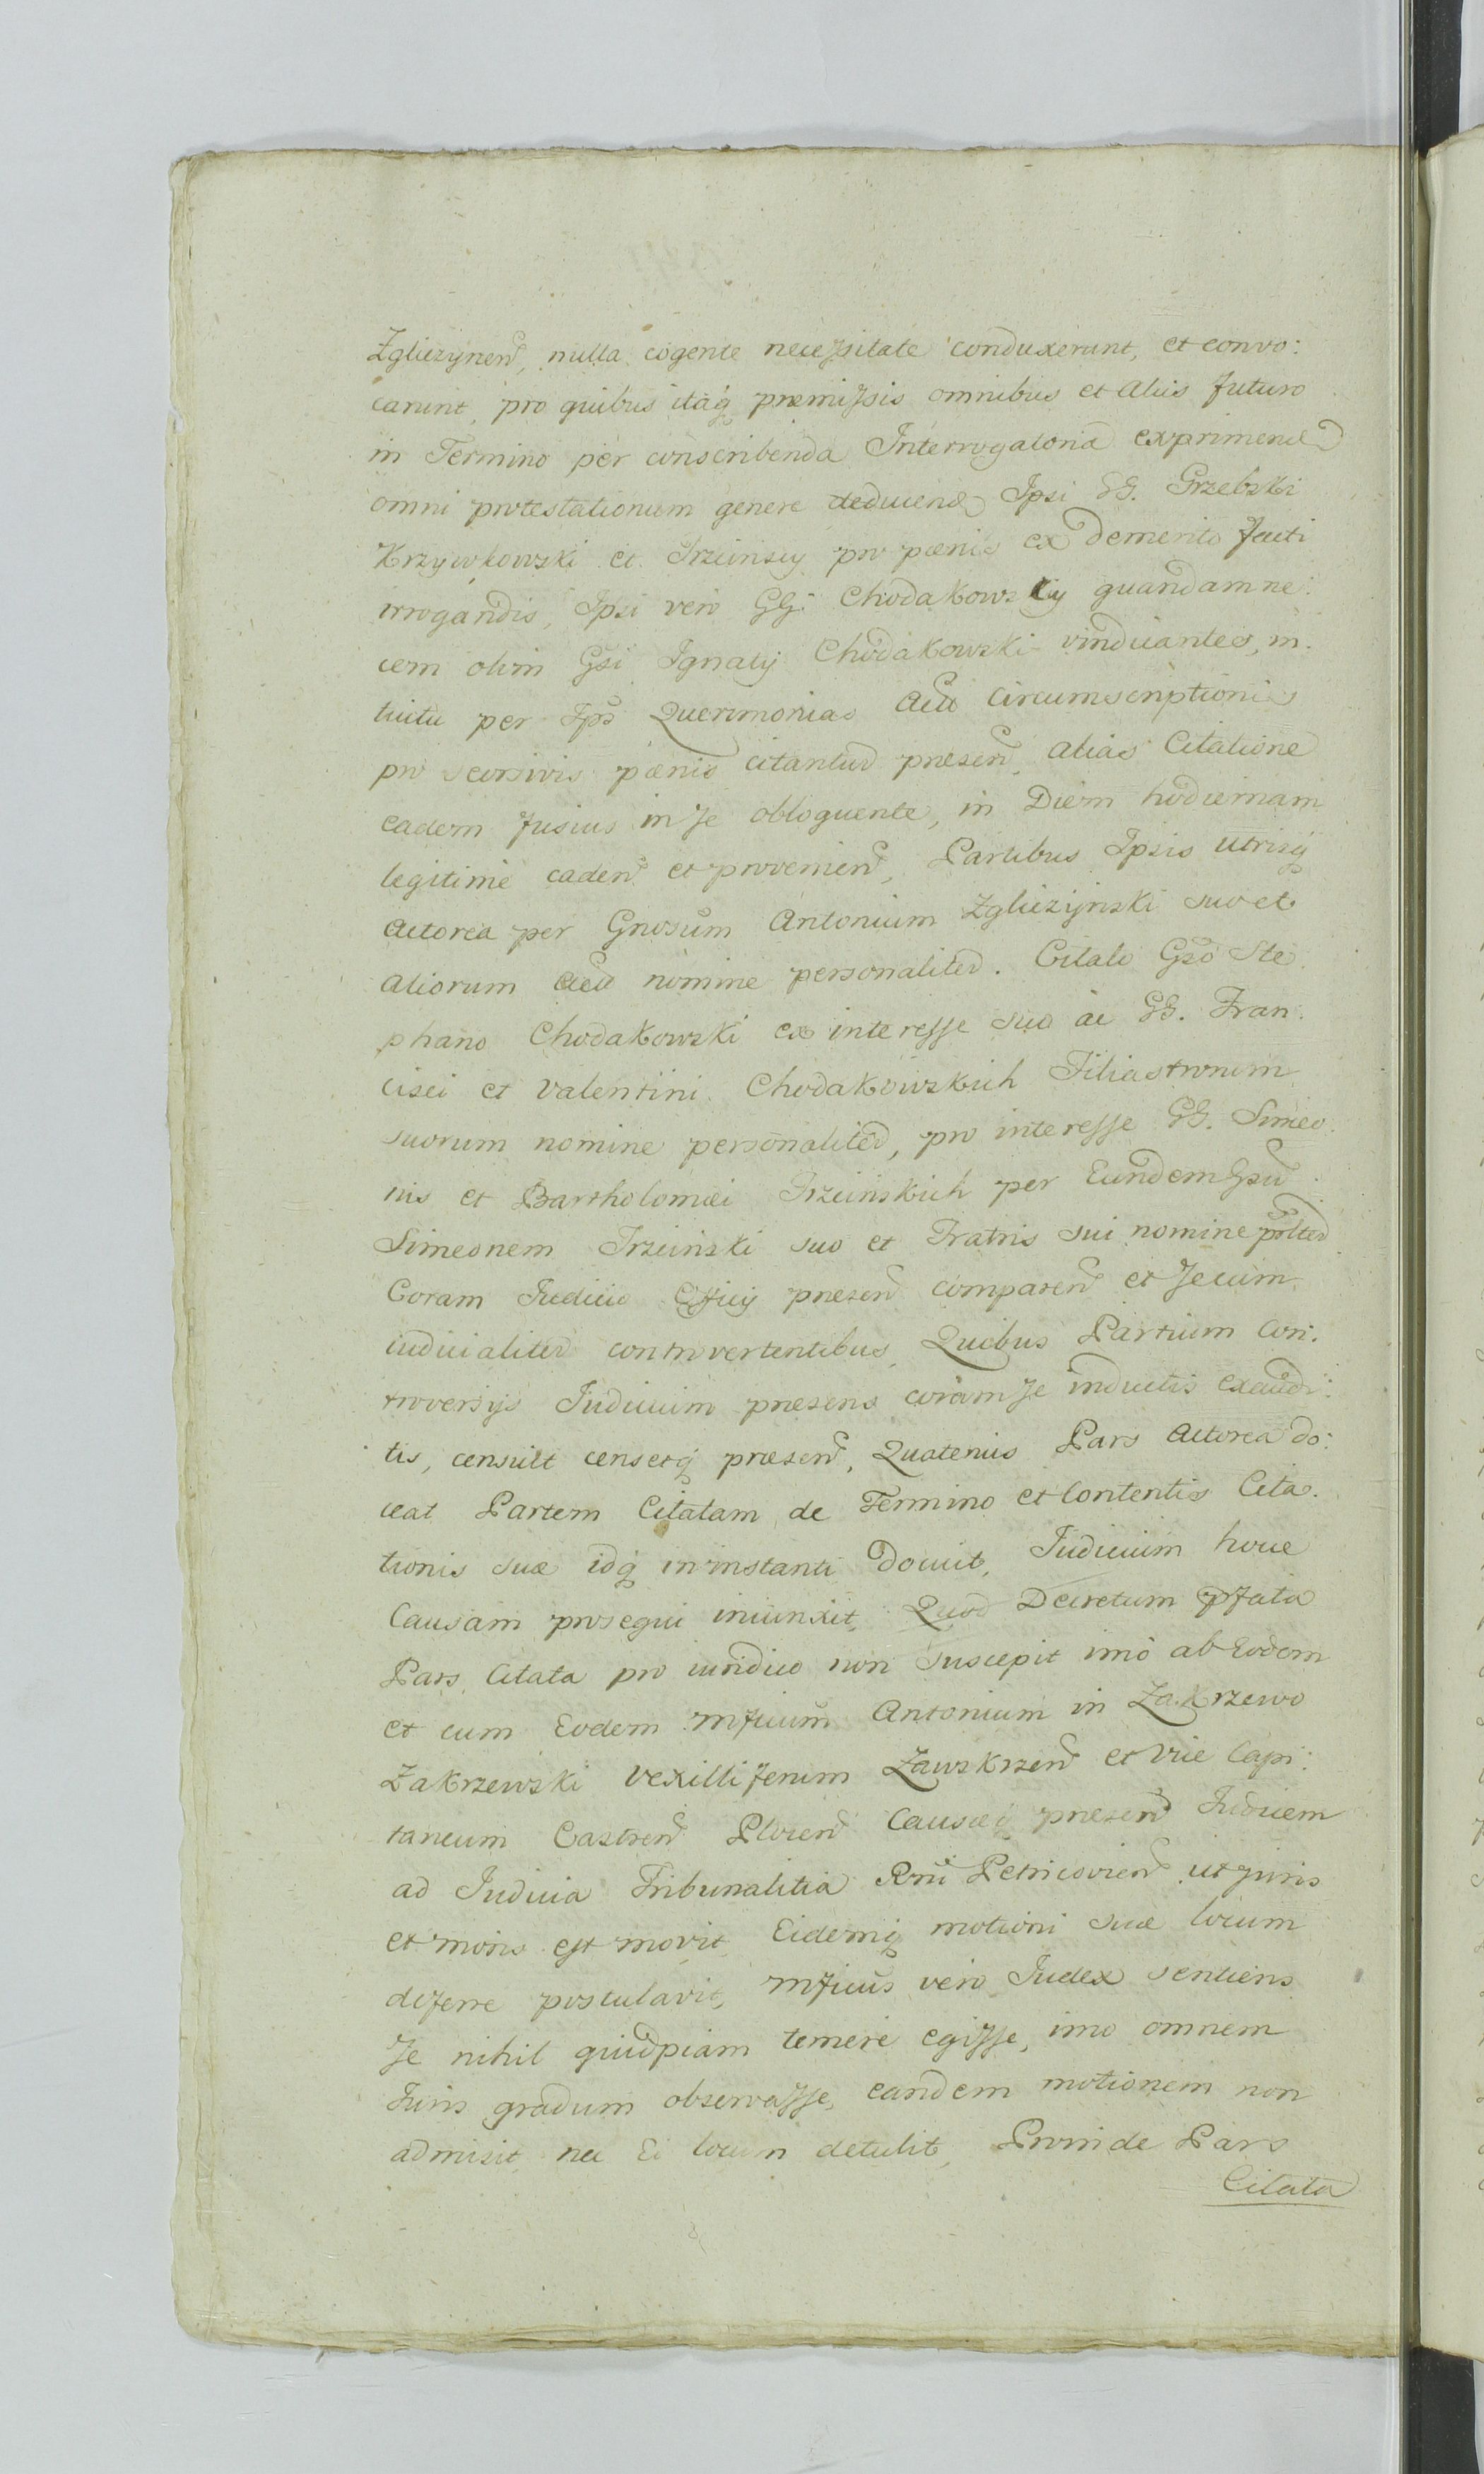 Zgliczynen, nulla cogente necessitate conduxerunt, et convo:
carunt, pro quibus itaq præmissis omnibus et aliis futuro
in Termino per conscribenda Interrogatoria exprimend
omni protestationum genere deducend Ipsi GG. Grzebski
Krzywkowski et Trzcinscy pro pænis ex demerito facti
irrogandis, Ipsi vero GG: Chodakowscy quandam ne:
cem olim Gsi Ignatij Chodakowski vindicantes, in:
tuitu per Ips Querimonias Act Circumscriptionis
pro seorsivis pænis citantur præsen, alias Citatione
eadem fusius in se obloquente, in Diem hodiernam
legitime caden et provenien, Partibus Ipsis utrisq
Actorea per Gnosum Antonium Zgliczynski suo et
aliorum Act nomine personaliter. Citata Gso Ste:
phano Chodakowski ex interesse suo ac GG. Fran:
cisci et Valentini Chodakowskich Filiastrorum
suorum nomine personaliter, pro interesse GG. Simeo:
nis et Bartholomæi Trzcinskich per Eundem Gsum
Simeonem Trzcinski suo et Fratris sui nomine pslter
Coram Judicio Officij præsen comparen et secum
iudicialiter controvertentibus, Quibus Partium Con:
troversijs Judicium præsens coram se inductis exaudi:
tis, censuit censetq præsen, Quatenus Pars Actorea do:
ceat Partem Citatam de Termino et Contentis Cita:
tionis suæ idq in instanti docuit, Judicium hocce
Causam prosequi iniunxit, Quod Decretum pfata
Pars Citata pro iuridico non suscepit imo ab Eodem
et cum Eodem Mficum Antonium in Zakrzewo
Zakrzewski Vexilliferum Zawskrzen et Vice Capi:
taneum Castren Plocen Causæq præsen Judicem
ad Judicia Tribunalitia Rni Petricovien ut juris
et moris est movit, Eidemq motioni suæ locum
deferre postulavit, Mficus vero Judex sentiens
se nihil quidpiam temere egisse, imo omnem
Juris gradum observasse, eandem motionem non
admisit nec Ei locum detulit, Proinde Pars
Citata